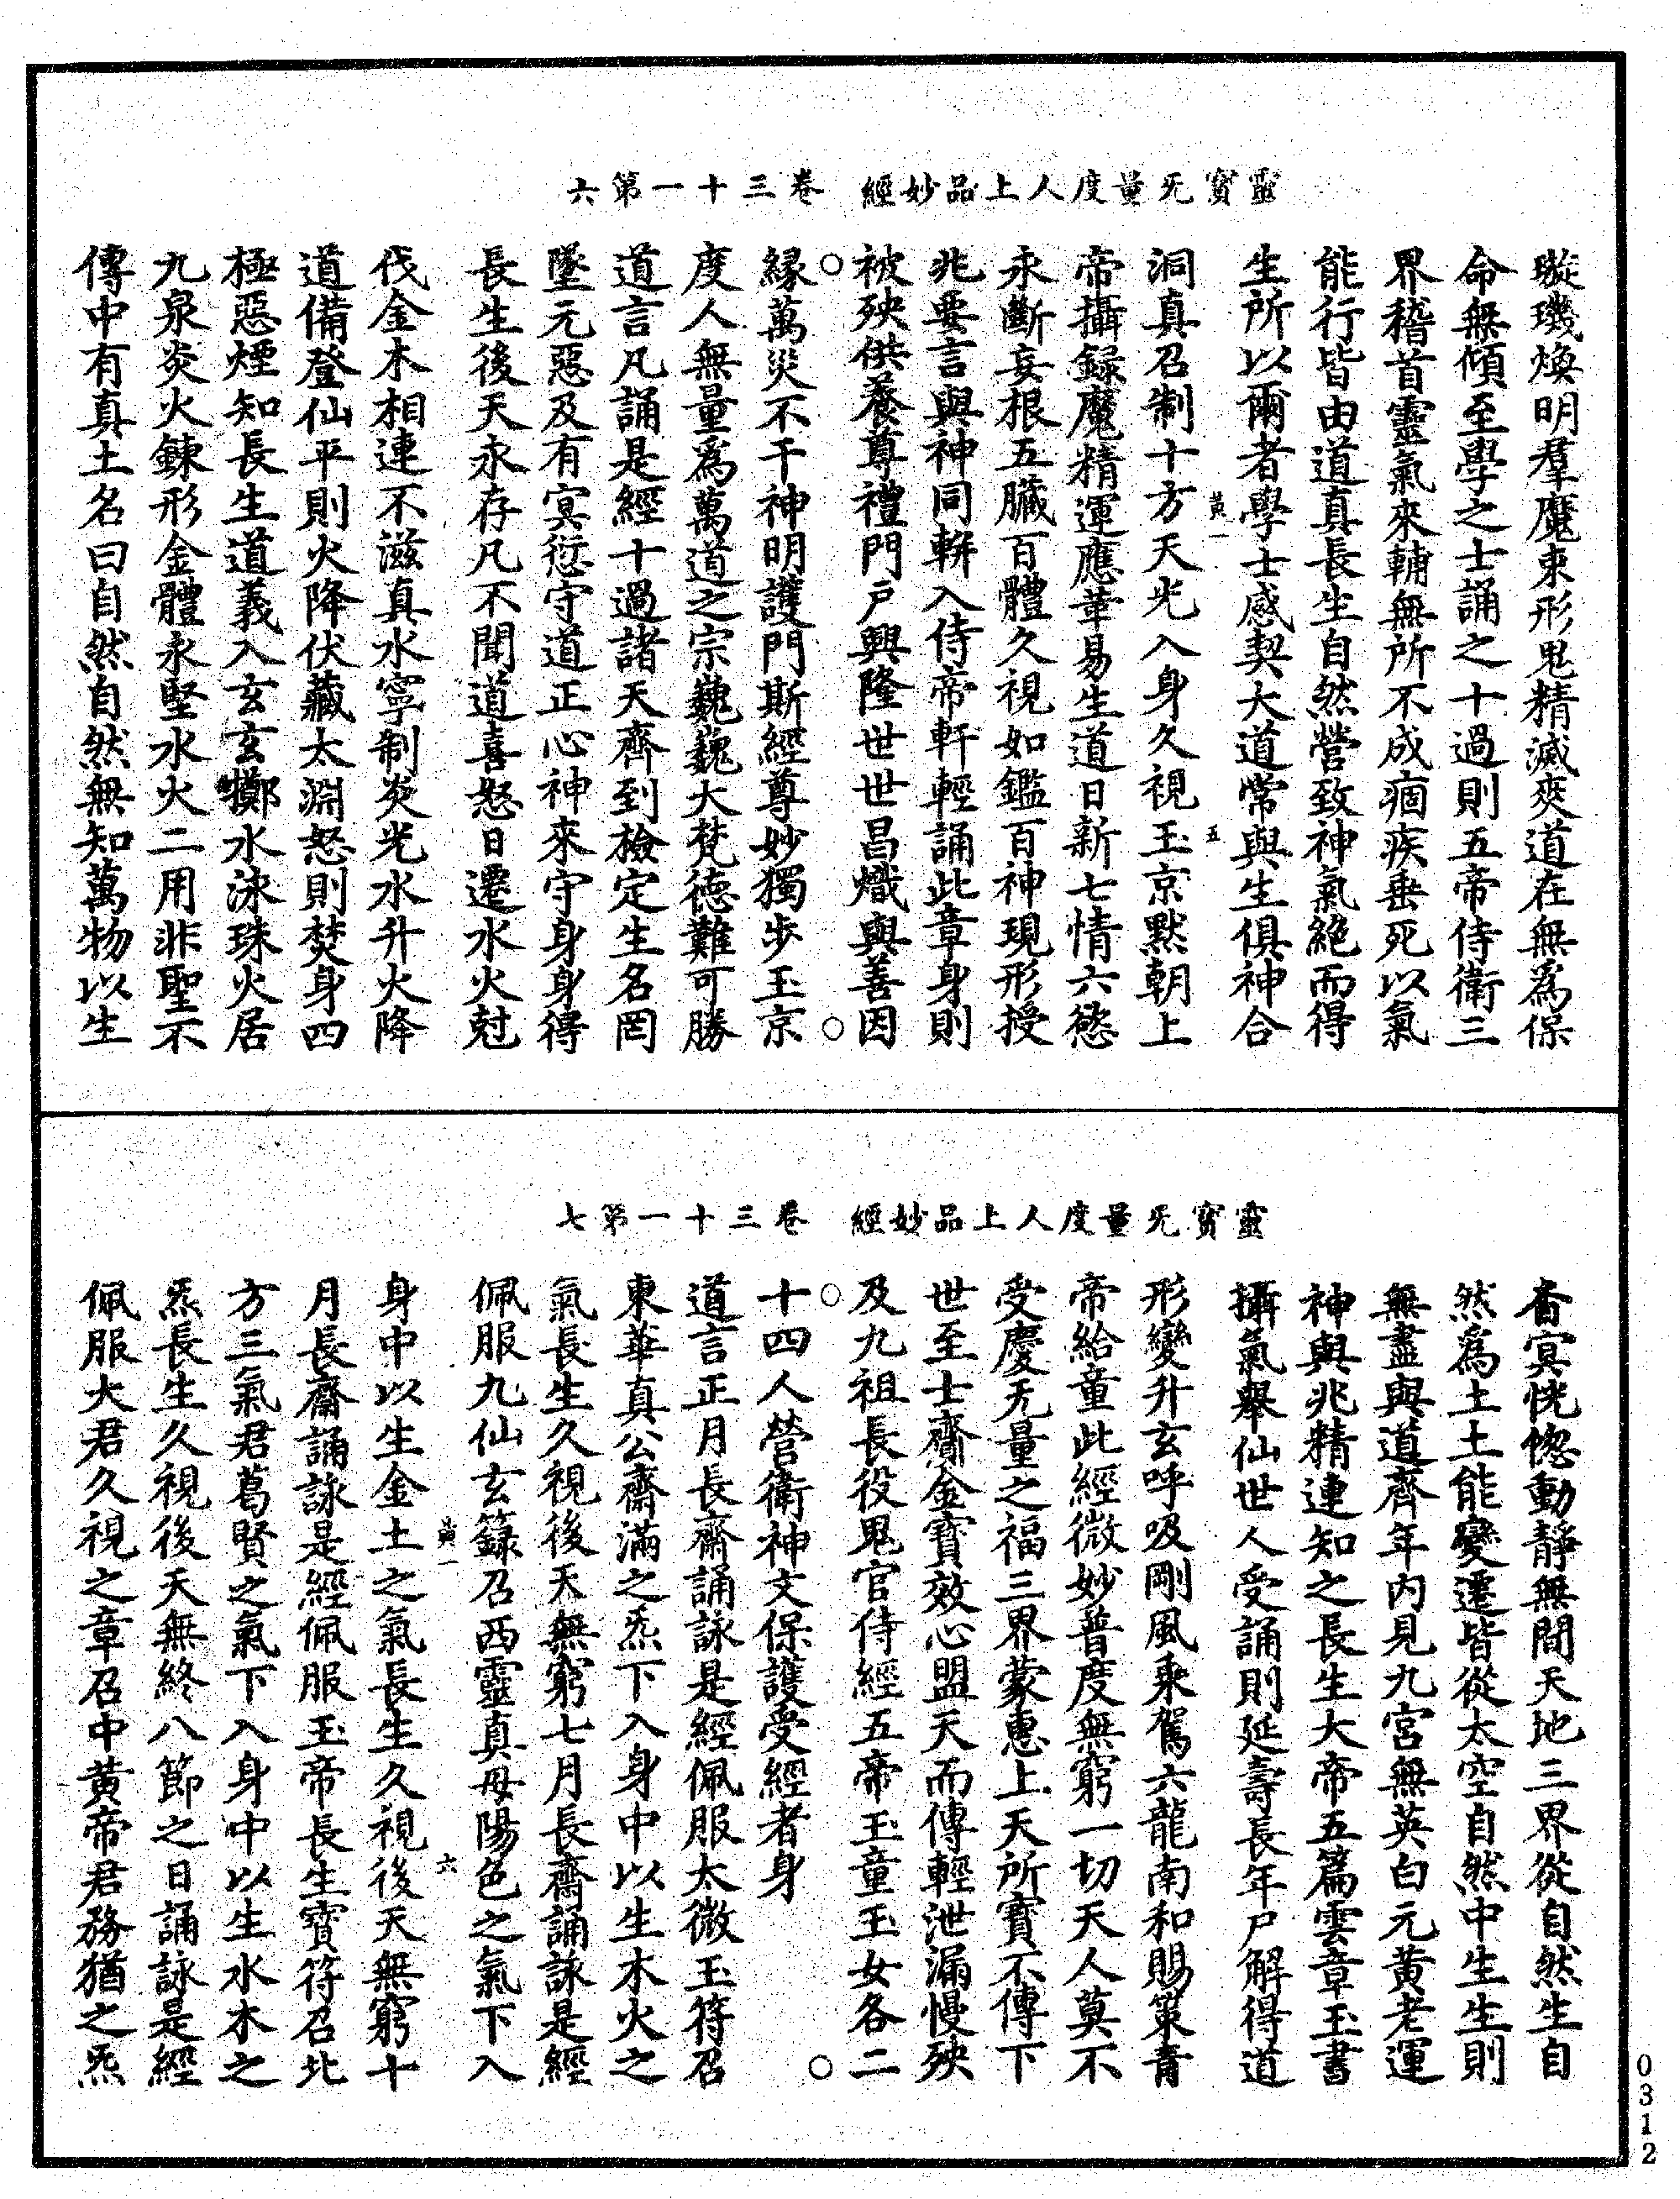 靈寶无量度人上品妙經　卷三十一第六
璇璣煥明羣魔束形鬼精滅爽道在無爲保
命無傾至學之士誦之十過則五帝侍衛三
界稽首靈氣來輔無所不成痼疾垂死以氣
能行皆由道真長生自然營致神氣絕而得
生所以爾者學士感契大道常與生俱神合
黃一　五
洞真召制十方天光入身久視玉京默朝上
帝攝録魔精運應華易生道日新七情六慾
永斷妄根五臟百體久視如鑑百神現形授
兆要言與神同軿入侍帝軒輕誦此章身則
被殃供養尊禮門戶興隆世世昌熾與善因
緣萬災不干神明護門斯經尊妙獨步玉京
度人無量爲萬道之宗巍巍大梵德難可勝
○　○
道言凡誦是經十過諸天齊到檢定生名罔
墜元惡及有冥愆守道正心神來守身身得
長生後天永存凡不聞道喜怒日遷水火尅
伐金木相連不滋真水寧制炎光水升火降
道備登仙平則火降伏藏太淵怒則焚身四
極惡煙知長生道義入玄玄擲水泳珠火居
九泉炎火鍊形金體永堅水火二用非聖不
傳中有真土名曰自然自然無知萬物以生
靈寶无量度人上品妙經　卷三十一第七
杳冥恍惚動靜無間天地三界從自然生自
然爲土土能變遷皆從太空自然中生生則
無盡與道齊年內見九宮無英白元黃老運
神與兆精連知之長生大帝五篇雲章玉書
攝氣舉仙世人受誦則延壽長年尸解得道
形變升玄呼吸剛風乘駕六龍南和賜策青
帝給童此經微妙普度無窮一切天人莫不
受慶无量之福三界蒙惠上天所寶不傳下
世至士齎金寶效心盟天而傳輕泄漏慢殃
及九祖長役鬼官侍經五帝玉童玉女各二
十四人營衛神文保護受經者身
○　○
道言正月長齋誦詠是經佩服太微玉符召
東華真公齋滿之炁下入身中以生木火之
氣長生久視後天無窮七月長齋誦詠是經
佩服九仙玄籙召西靈真母陽色之氣下入
黃一　六
身中以生金土之氣長生久視後天無窮十
月長齋誦詠是經佩服玉帝長生寶符召北
方三氣君葛賢之氣下入身中以生水木之
炁長生久視後天無終八節之日誦詠是經
佩服大君久視之章召中黃帝君務猶之炁
0312